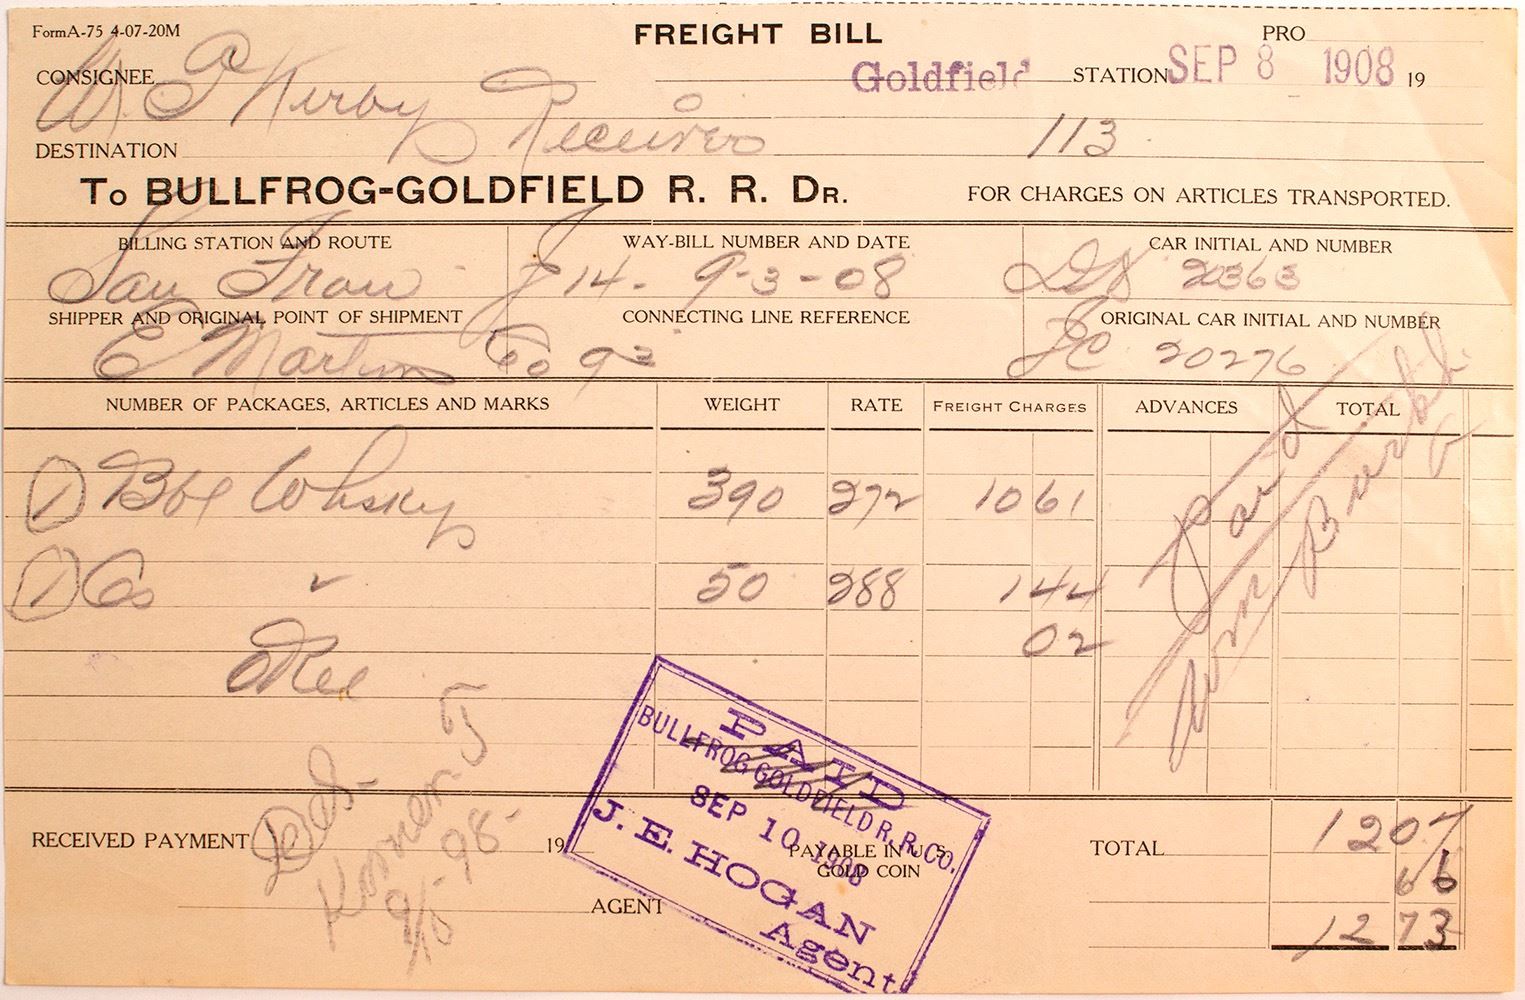 FormA-75 4-07-20M
FREIGHT BILL
PRO
CONSIGNEE
Goldfield STATION SEP 8 1908 19
W. P Kirby Receiver
DESTINATION
113
To BULLFROG-GOLDFIELD R. R. DR.
FOR CHARGES ON ARTICLES TRANSPORTED.
BILLING STATION AND ROUTE
WAY-BILL NUMBER AND DATE
CAR INITIAL AND NUMBER
San Fran
J 14. 9-3-08
20363
SHIPPER AND ORIGINAL POINT OF SHIPMENT
CONNECTING LINE REFERENCE
ORIGINAL CAR INITIAL AND NUMBER
E Martin Co
20276
NUMBER OF PACKAGES, ARTICLES AND MARKS
WEIGHT
RATE
FREIGHT CHARGES
ADVANCES
TOTAL
1 Bbl Whsky 390 272 10 61
1 Cs " 50 288 1 44
02
Paid
PAID
BULLFROG GOLDFIELD R. R. CO.
SEP 10 1908
J. E. HOGAN
Agent
RECEIVED PAYMENT
19
PAYABLE IN U. S.
GOLD COIN
AGENT
TOTAL
12 07
66
12 73